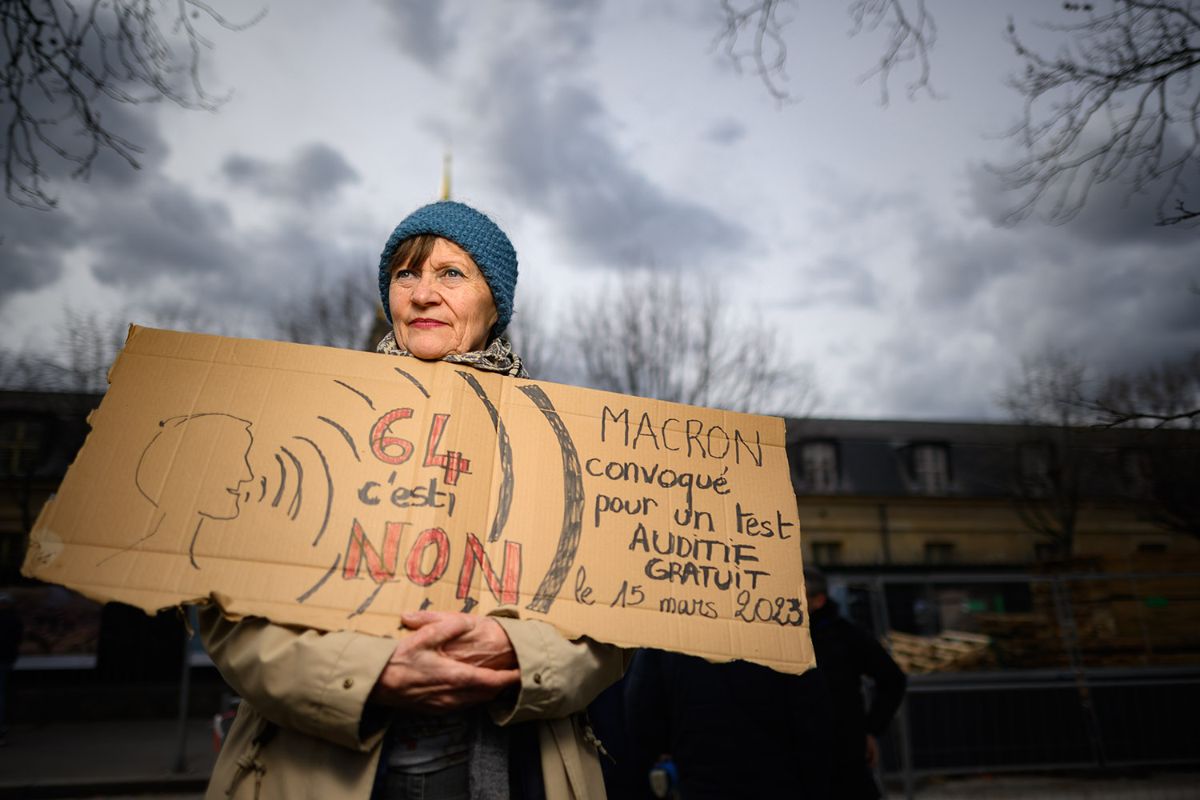 64
c'est,
NON
MACRON
convoqué
pour un test
AUDITIF
GRATUIT
le 15 mars 2023